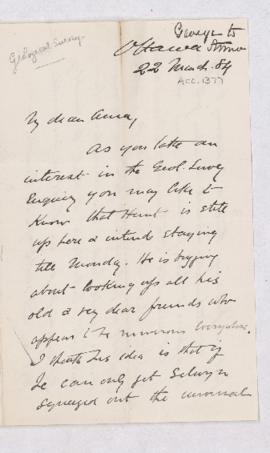 Geological Survey
George to
Anna
Ottawa
22 March 84
ACC. 1377
My dear Anna,
As you take an
interest in the Geol. Survey
Enquiry you may like to
know that Hunt is still
up here & intends staying
till Monday. He is
about looking up all his
old & very dear friends who
appears to be numerous
I think his idea is that if
he can only get Selwyn
squeezed out the